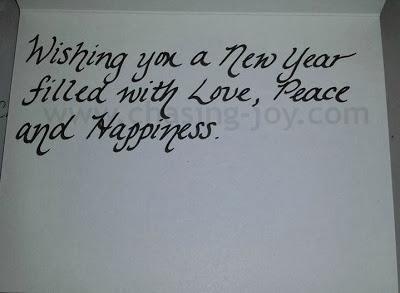 Wishing you a New Year
filled with Love, Peace
www.chasing-joy.com
and Happiness.